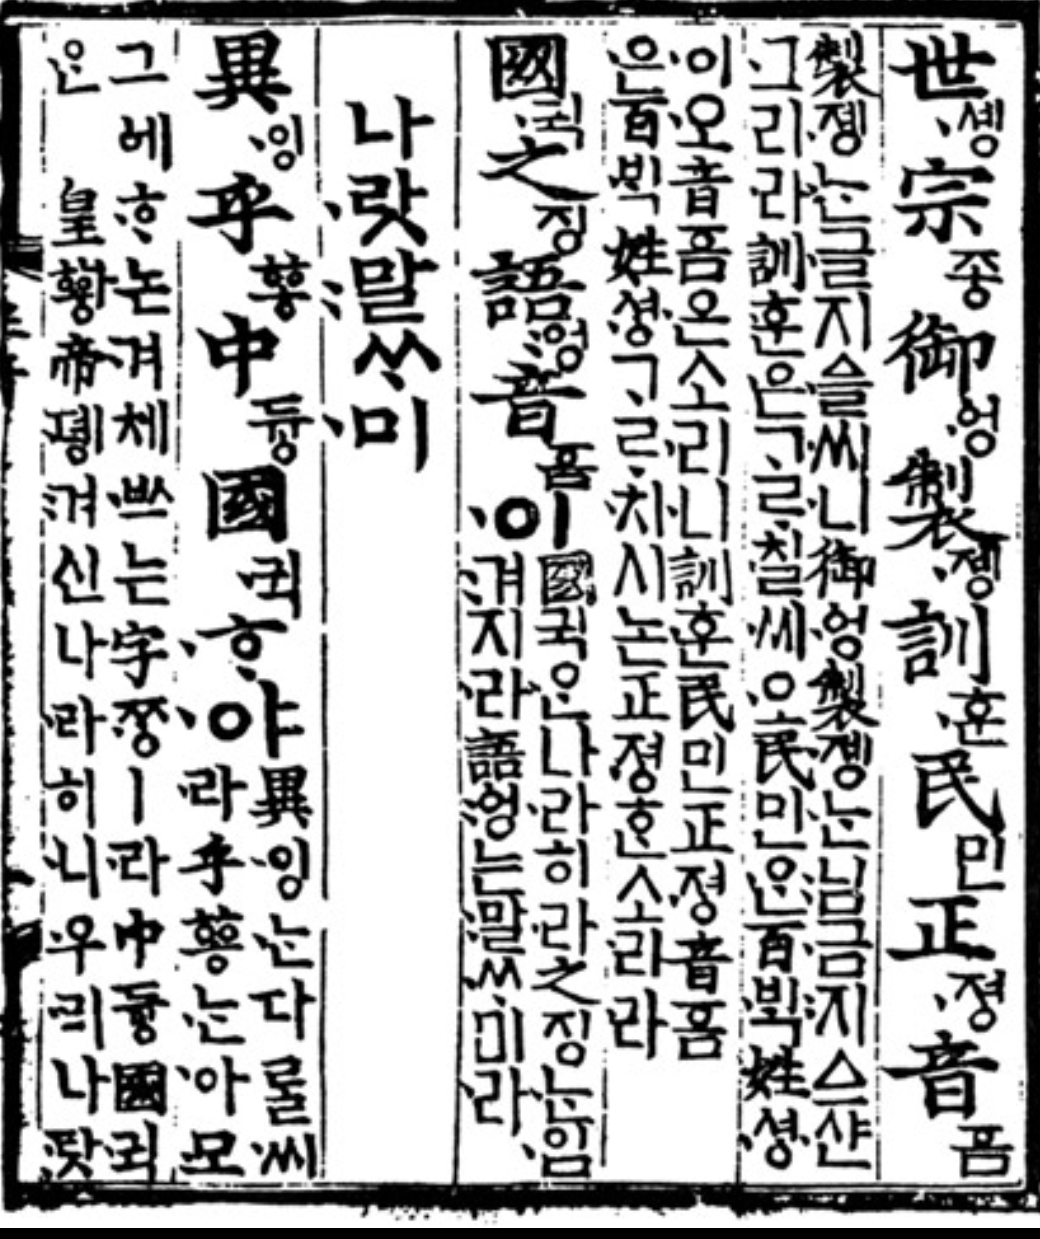 世솅〮宗조ᇰ御ᅌᅥᆼ〮製졩〮訓훈〮民민正져ᇰ〮音ᅙᅳᆷ
製졩〮ᄂᆞᆫ글지ᅀᅳᆯ씨니御ᅌᅥᆼ〮製졩〮ᄂᆞᆫ님〯금지〯ᅀᅳ샨
그리라訓훈〮은ᄀᆞᄅᆞ칠씨오民민ᄋᆞᆫ百ᄇᆡᆨ〮姓셔ᇰ〮
이오音ᅙᅳᆷ은소리니訓훈〮民민正져ᇰ〮音ᅙᅳᆷ
은百ᄇᆡᆨ〮姓셔ᇰ〮ᄀᆞᄅᆞ치시논正져ᇰ〮ᄒᆞᆫ소리라
國귁〮之징語ᅌᅥᆼ〯音ᅙᅳᆷ이〮
國귁〮ᄋᆞᆫ나라히라之징ᄂᆞᆫ입
겨지라語ᅌᅥᆼ〯는말〯ᄊᆞ미라
나랏〮말〯ᄊᆞ미〮
異잉〮乎ᅘᅩᆼ中듀ᇰ國귁〮ᄒᆞ〮야〮
異잉〮ᄂᆞᆫ다ᄅᆞᆯ씨
라乎ᅘᅩᆼᄂᆞᆫ아〮모
그ᅌᅦᄒᆞ논겨체ᄡᅳ는字ᄍᆞᆼㅣ라中듀ᇰ國귁〮
ᄋᆞᆫ皇ᅘᅪᇰ帝뎽〮겨〯신나라히니우리나랏